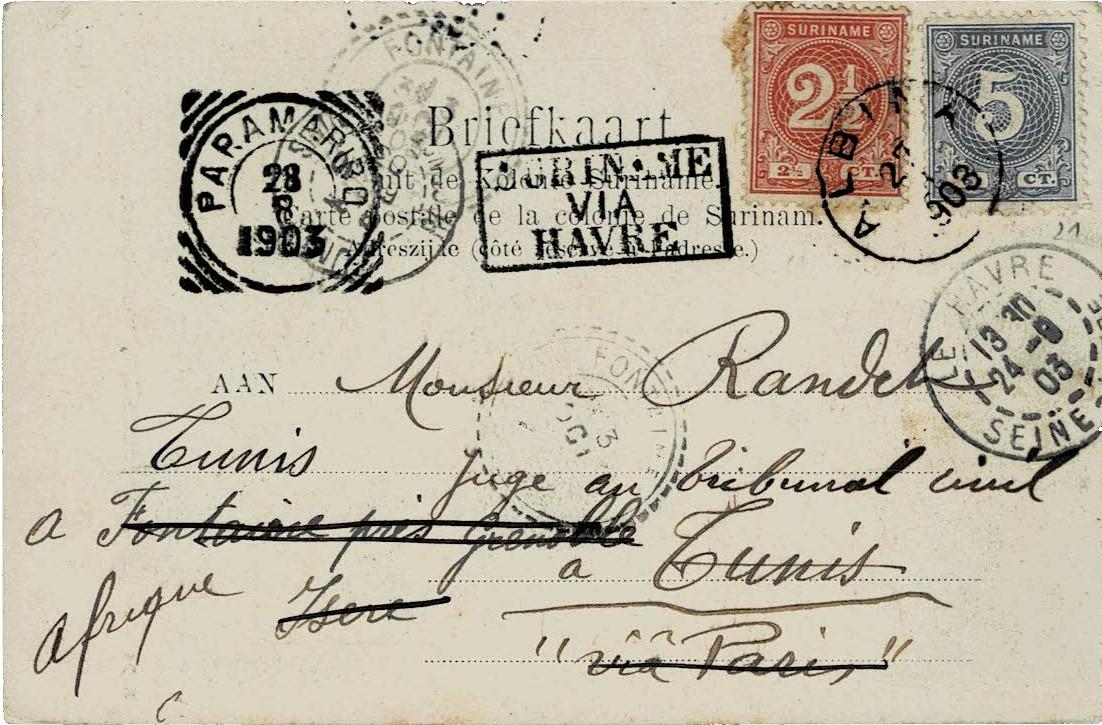 SURINAME
2½
2½ CT.
SURINAME
5
CT.
ALBINA
1903
PARAMARIBO
28
8
1903
FONTAINE
Briefkaart
uit de Kolonie Suriname.
Carte postale de la colonie de Surinam.
Adreszijde (côté réservé à l'adresse.)
SURINAME
VIA
HAVRE
LE HAVRE
24 -9
03
SEINE
FONTAINE
AAN Monsieur Randet
Tunis Juge au tribunal civil
a Fontaine près Grenoble
à Tunis
Afrique Isere
"via Paris"